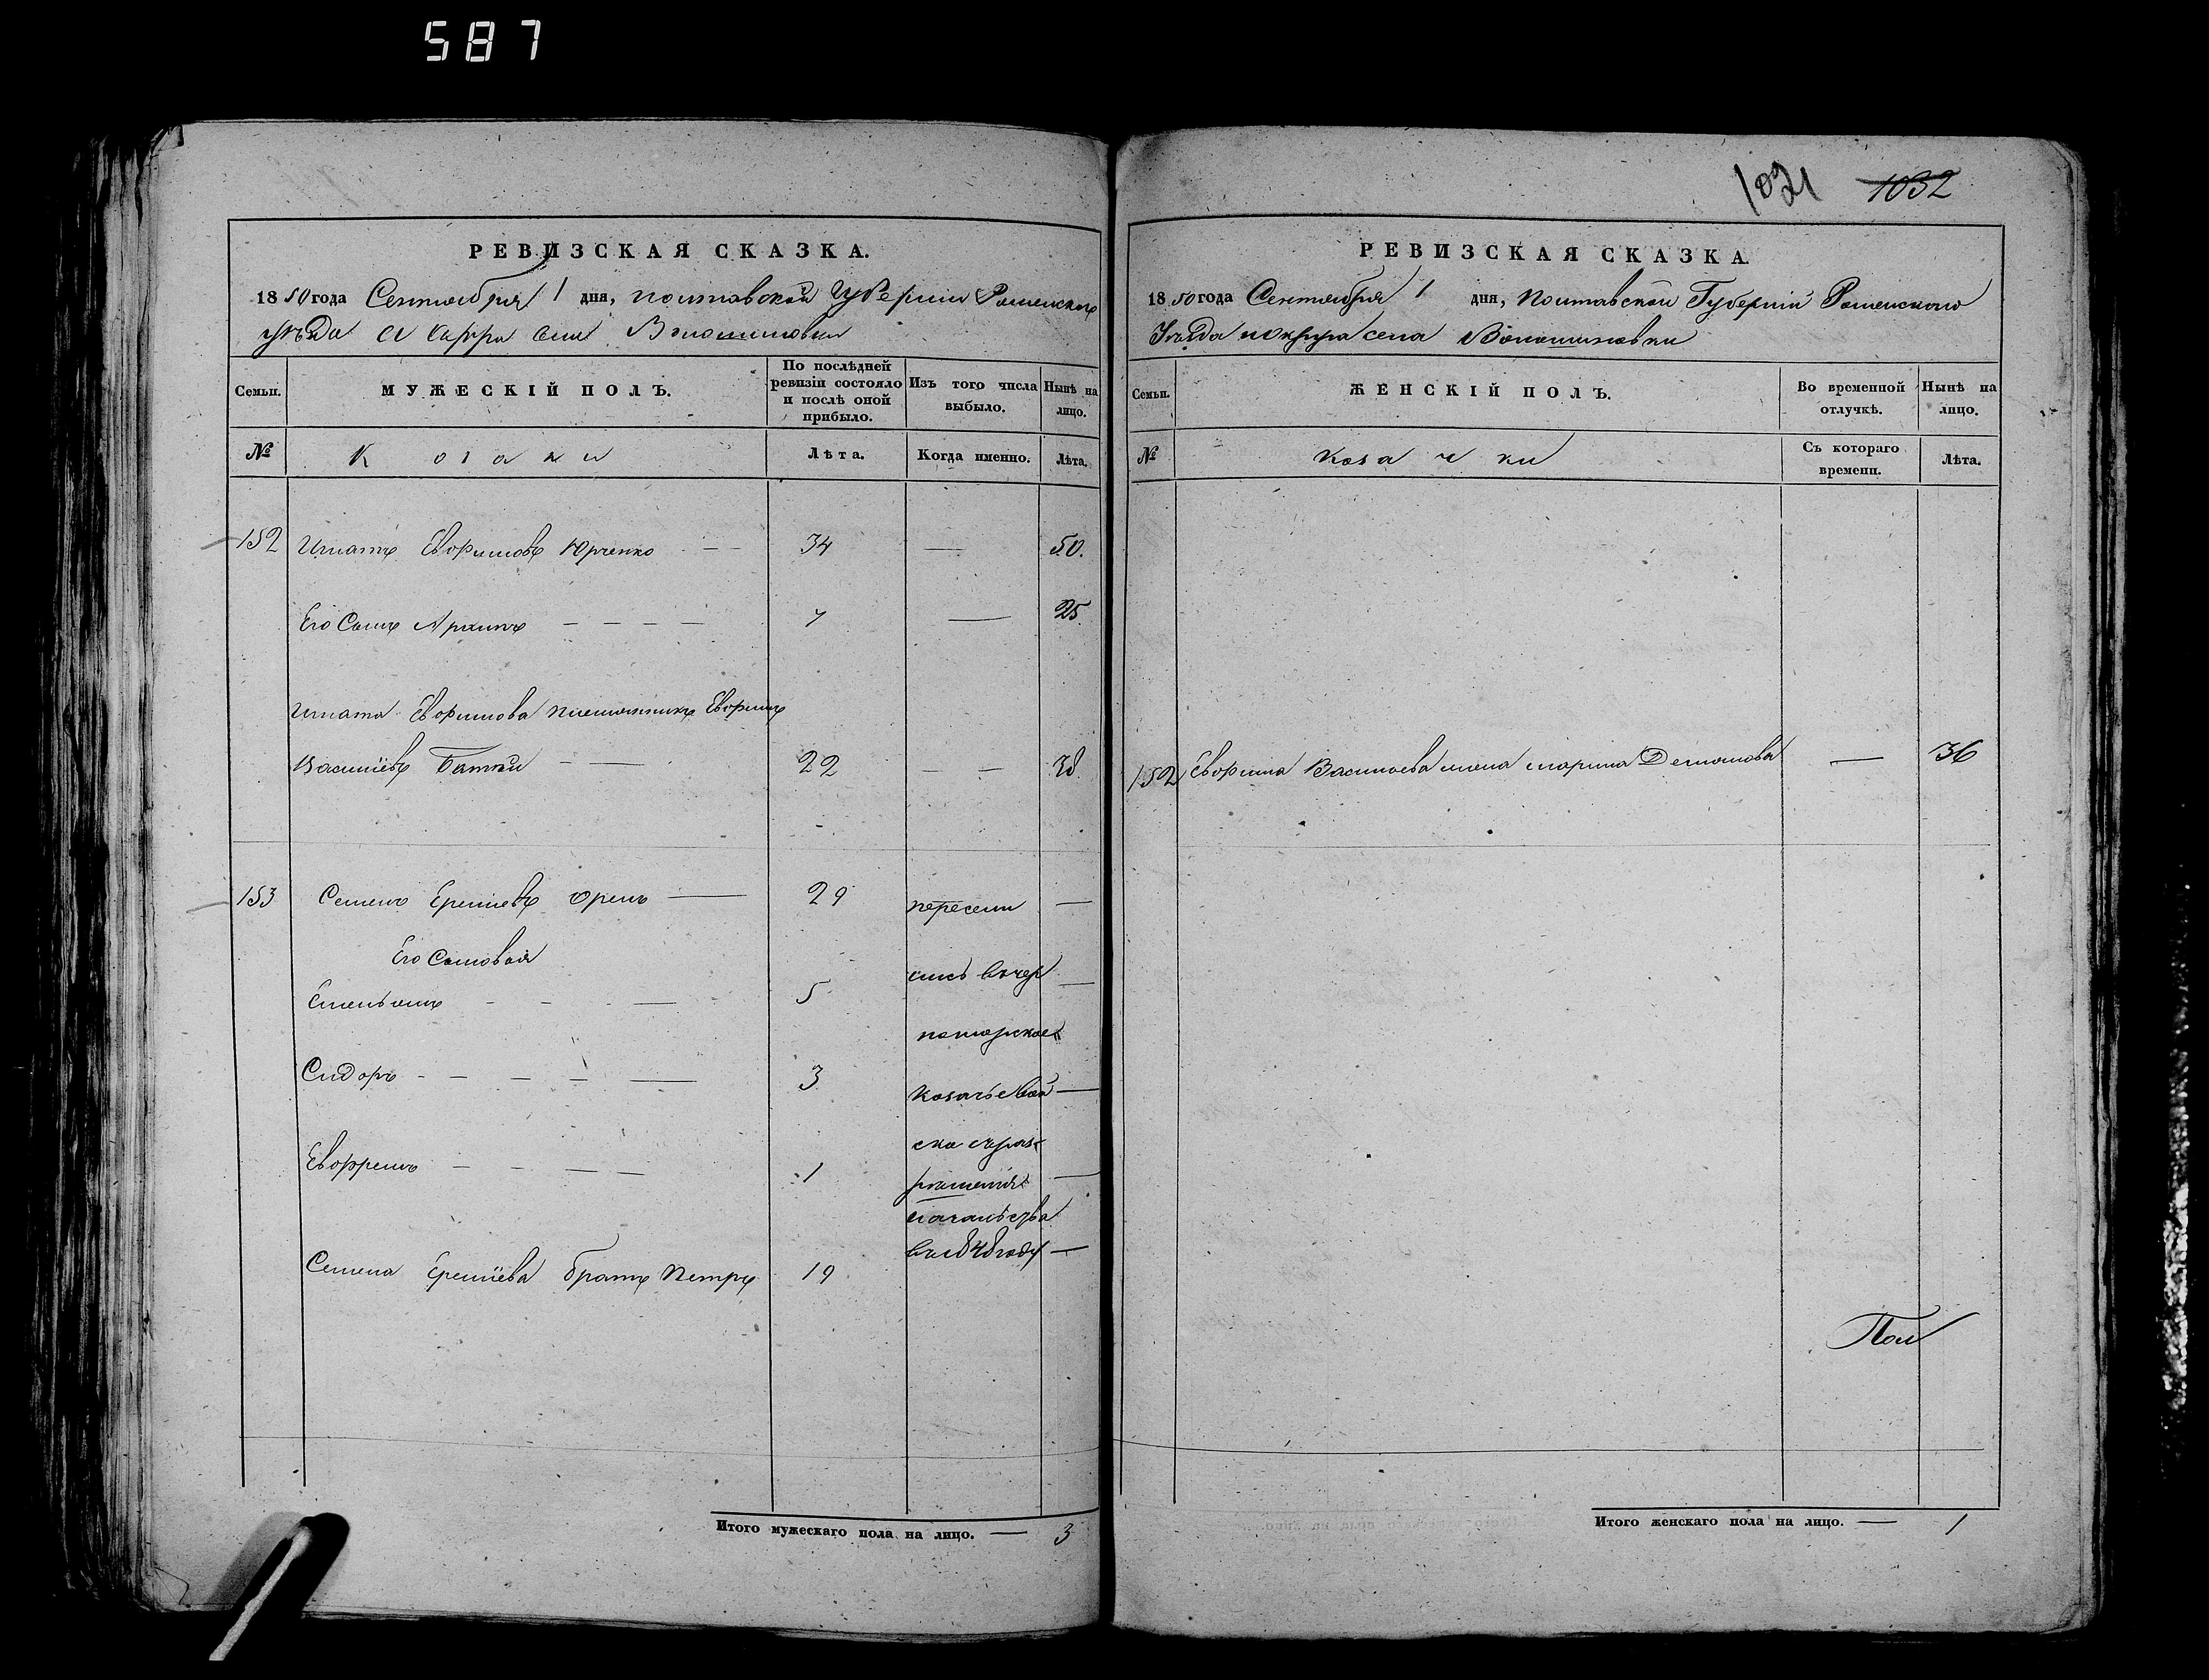 587
1021 1032
РЕВИЗСКАЯ СКАЗКА.
1850 года Сентября 1 дня, Полтавской Губернии Роменского
уѣзда Волошиновки
Семьи.
МУЖЕСКІЙ ПОЛЪ.
По послѣдней ревизіи состояло и послѣ оной прибыло.
Изъ того числа выбыло.
Нынѣ на лицо.
№
Козаки
Лѣта.
Когда именно.
Лѣта.
152 Игнатъ Евфимовъ Юрченко 34 — 50.
Его Сынъ Архипъ 25
Игната Евфимова племянникъ Евфимъ
Васильевъ 22 — 38
153 Семенъ Еремѣевъ 29 пересели —
Его Сыновья
Емельянъ 5 лись в —
Сидоръ 3 —
Евфремъ 1
начальства
году —
Семена Еремѣева братъ Петръ 19
Итого мужескаго пола на лицо. — 3
РЕВИЗСКАЯ СКАЗКА.
1850 года Сентября 1 дня, Полтавской Губерніи Роменского
Уѣзда села Волошиновки
Семьи.
ЖЕНСКІЙ ПОЛЪ.
Во временной отлучкѣ.
Нынѣ на лицо.
№
Козачки
Съ котораго времени.
Лѣта.
152 Евфима Васильева жена Марина Демьянова — 36
Итого женскаго пола на лицо. — 1